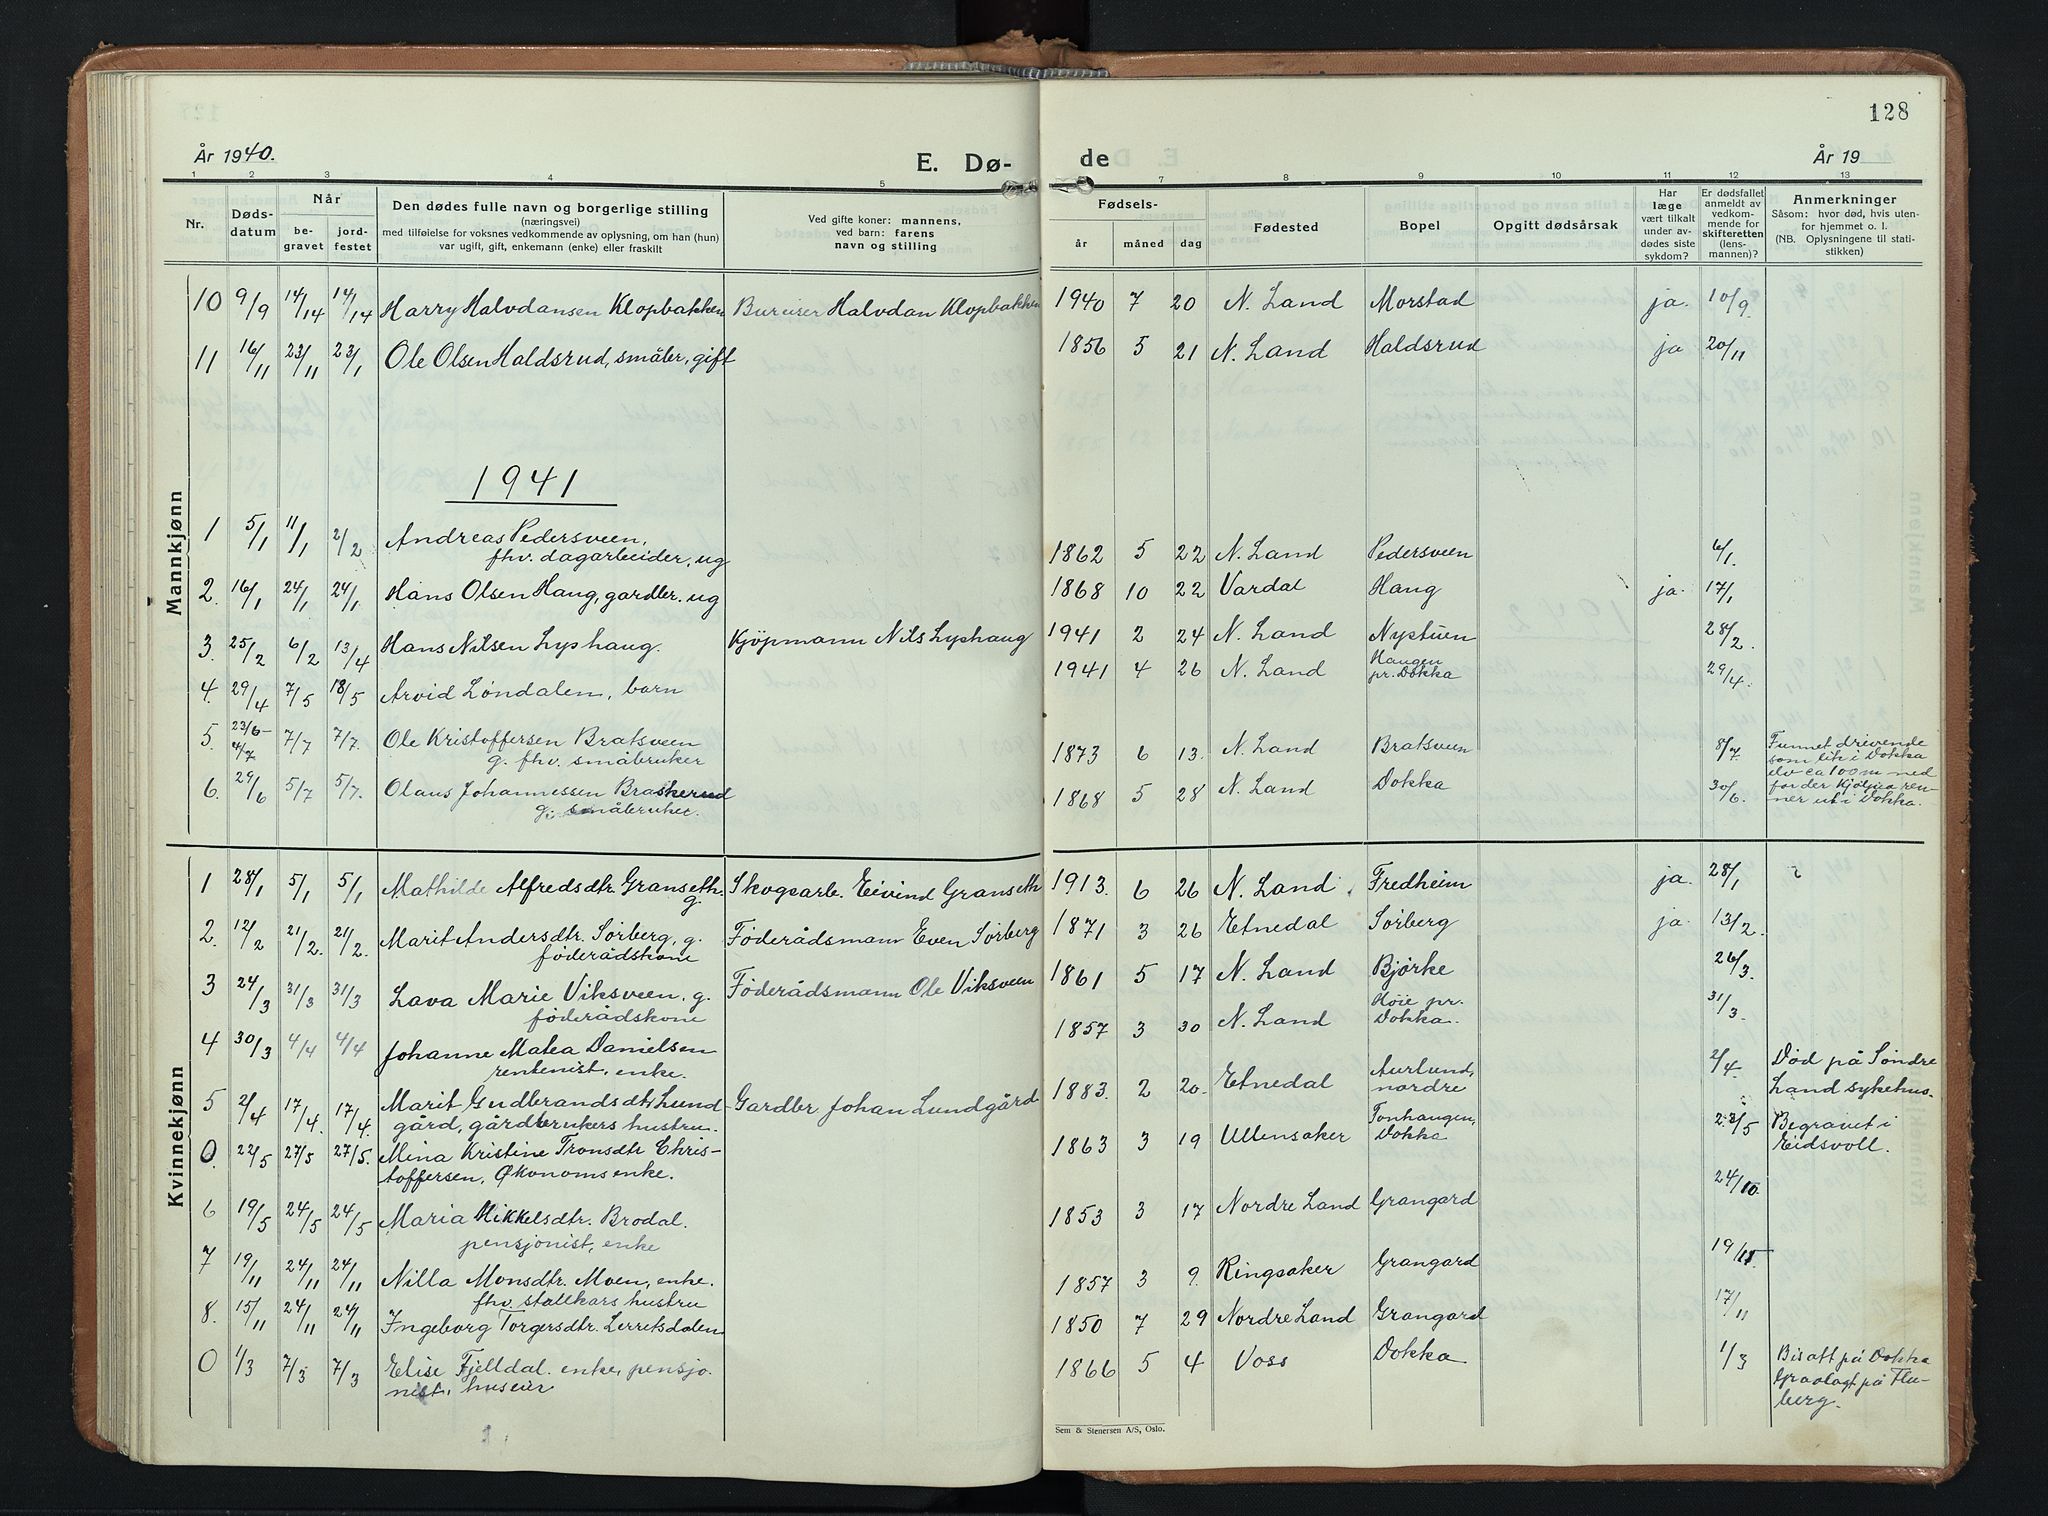 128
År 1940.
E. Dø-
de
År 19
1 2 3 4 5 7 8 9 10 11 12 13
Nr.
Døds-
datum
Når
be-
gravet
jord-
festet
Den dødes fulle navn og borgerlige stilling
(næringsvei)
med tilføielse for voksnes vedkommende av oplysning, om han (hun)
var ugift, gift, enkemann (enke) eller fraskilt
Ved gifte koner: mannens,
ved barn: farens
navn og stilling
Fødsels-
år måned dag
Fødested
Bopel
Opgitt dødsårsak
Har
læge
vært tilkalt
under av-
dødes siste
sykdom?
Er dødsfallet
anmeldt av
vedkom-
mende for
skifteretten
(lens-
mannen)?
Anmerkninger
Såsom: hvor død, hvis uten-
for hjemmet o. l.
(NB. Oplysningene til stati-
stikken)
Mannkjønn
10 9/9 14/14 14/14 Harry Halvdansen Klopbakken Bureiser Halvdan Klopbakken 1940 7 20 N. Land Morstad ja. 10/9.
11 16/11 23/11 23/1 Ole Olsen Haldsrud, småbr, gift 1856 5 21 N. Land Haldsrud ja 20/11
1941
1 5/1 11/1 2/2 Andreas Pedersveen,
fhv. dagarbeider, ug 1862 5 22 N. Land Pedersveen 6/1.
2. 16/1 24/1 24/1 Hans Olsen Haug, gardbr. ug 1868 10 22 Vardal Haug ja. 17/1
3. 25/2 6/2 13/4 Hans Nilsen Lyshaug. Kjøpmann Nils Lyshaug 1941 2 24 N. Land Nystuen 28/2.
4. 29/4 7/5 18/5 Arvid Løndalen, barn 1941 4 26 N. Land Haugen
pr. Dokka 29/4.
5. 23/6-
4/7 7/7 7/7. Ole Kristoffersen Bratsveen
g. fhv. småbruker 1873 6 13. N. Land Bratsveen 8/7. Funnet drivende
som lik i Dokka
elv ca 100 m ned
for der Kjølua ren-
ner ut i Dokka.
6. 29/6 5/7 5/7. Olaus Johannessen Braskerud
g. småbruker. 1868 5 28 N. Land Dokka 30/6.
Kvinnekjønn
1 28/1 5/1 5/1 Mathilde Alfredsdtr. Granseth.
g. Skogsarb. Eivind Granseth 1913. 6 26 N. Land Fredheim ja. 28/1
2. 12/2 21/2. 21/2. Marit Andersdtr. Sørberg, g.
føderådskone Føderådsmann Even Sørberg 1871 3 26 Etnedal Sørberg ja. 13/2.
3 24/3 31/3 31/3 Lava Marie Viksveen, g.
føderådskone Føderådsmann Ole Viksveen 1861 5 17 N. Land Bjørke 26/3.
4 30/3 4/4 4/4 Johanne Matea Danielsen
rentenist, enke. 1857 3 30 N. Land Høie pr.
Dokka. 31/3.
5 2/4 17/4. 17/4. Marit Gudbrandsdtr. Lund-
gård, gårdbrukers hustru. Gardbr Johan Lundgård 1883. 2 20. Etnedal Aurlund,
nordre 2/4. Død på Søndre
Land sykehus.
0. 22/5 27/5 27/5. Mina Kristine Tronsdtr Chris-
toffersen, Økonoms enke. 1863 3 19 Ullensaker Tonhaugen,
Dokka 23/5 Begravet i
Eidsvoll.
6 19/5 24/5 24/5 Maria Mikkelsdtr. Brodal.
pensjonist, enke 1853 3 17 Nordre Land Grangard 24/10.
7 19/11 24/11 24/11 Nilla Monsdtr. Moen, enke. 1857 3 9. Ringsaker Grangard 19/11.
8. 15/11 24/11 24/11 fhv. stallkars hustru
Ingeborg Torgersdtr. Lerretsdalen 1850 7 29 Nordre Land Grangard 17/11
0 1/3 7/3 7/3 Elise Fjelldal. enke, pensjo-
nist, huseier 1866 5 4 Voss Dokka 1/3 Bisatt på Dokka
Gravlagt på Flu-
berg.
Sem & Stenersen A/S, Oslo.